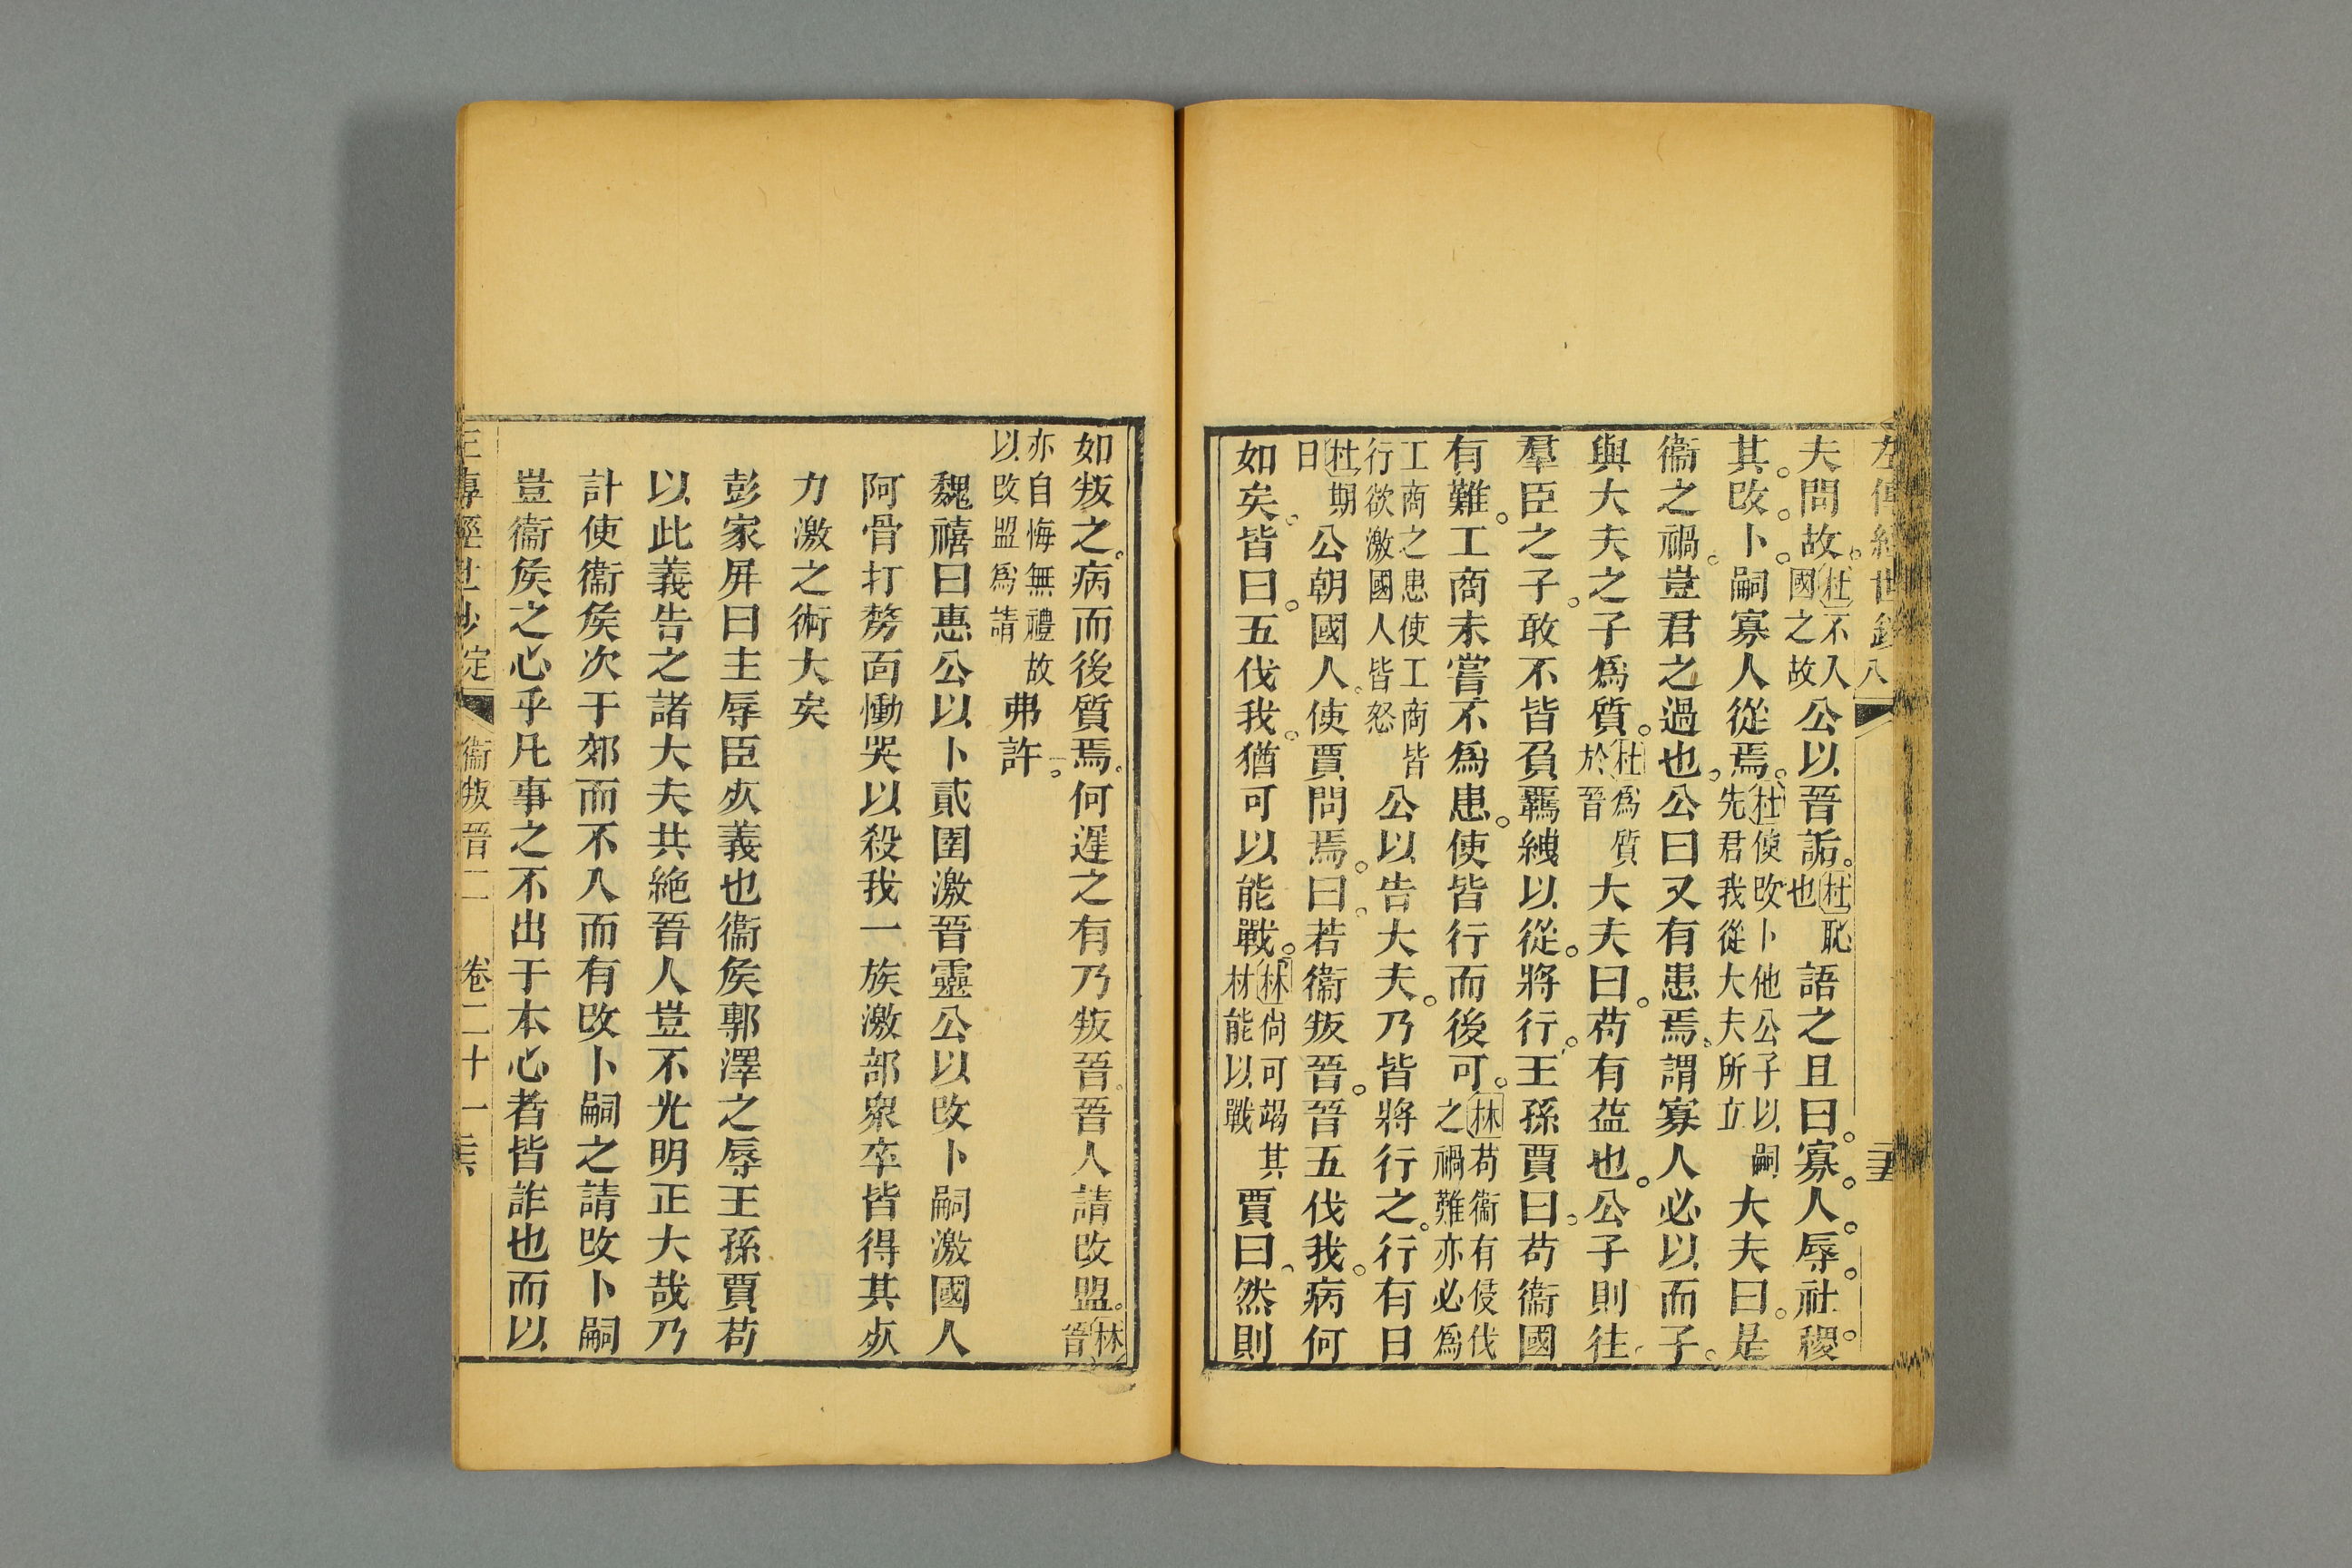 左傳經世鈔 八 二十五
夫問故。杜不入國之故公以晉詬。杜恥也語之且曰。寡。人。辱。社。稷。
其。改。卜。嗣寡人從焉。杜使改卜他公子以嗣先君我從大夫所立大夫曰。是
衞之禍。豈君之過也。公曰又有患焉。謂寡人必以而子。
與大夫之子爲質。杜爲質於晉大夫曰。苟有益也。公子則往。
羣臣之子。敢不皆負羈絏以從。將行。王孫賈曰。苟衞國
有難。工商未嘗不爲患。使皆行而後可。林苟衞有侵伐之禍難亦必爲
工商之患使工商皆行欲激國人皆怒公以告大夫。乃皆將行之。行有日
杜期日公朝國人。使賈問焉。曰。若衞叛晉。晉五伐我。病何
如矣。皆曰。五伐我。猶可以能戰。林尚可竭其材能以戰賈曰。然則
如叛之。病而後質焉。何遲之有乃叛晉。晉人請改盟。林晉
亦自悔無禮故以改盟爲請弗許。
魏禧曰惠公以卜貳圉激晉靈公以改卜嗣激國人
阿骨打剺面慟哭以殺我一族激部衆卒皆得其死
力激之術大矣
彭家屏曰主辱臣死義也衞矦鄟澤之辱王孫賈苟
以此義告之諸大夫共絶晉人豈不光明正大哉乃
計使衞矦次于郊而不入而有改卜嗣之請改卜嗣
豈衞矦之心乎凡事之不出于本心者皆詐也而以
左傳經世鈔 定 衞叛晉二 卷二十一 二十六